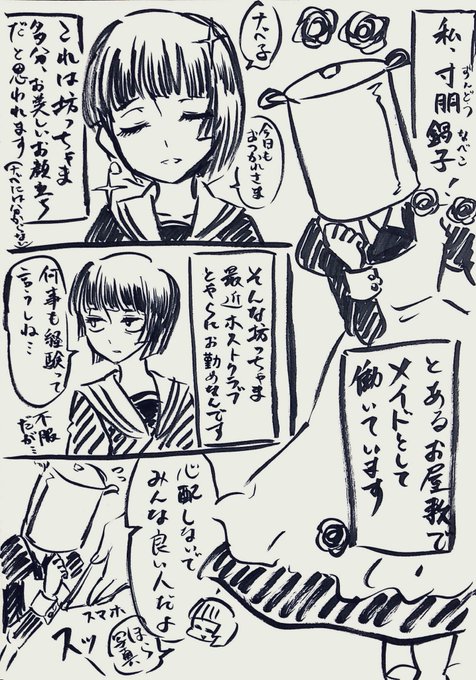 私、寸胴
鍋子!
ずんどう
なべこ
とあるお屋敷で
メイドとして
働いています
ナベ子
今日も
おつかれさま
これは坊っちゃま
多分、お美しいお顔立ち
だと思われます
(ナベにはわからない)
そんな坊っちゃま
最近ホストクラブ
とやらにお勤めだそうです
何事も経験って
言うしね…
不服
だが…
心配しないで
みんな良い人だよ
ほら
写真
スマホ
スッ